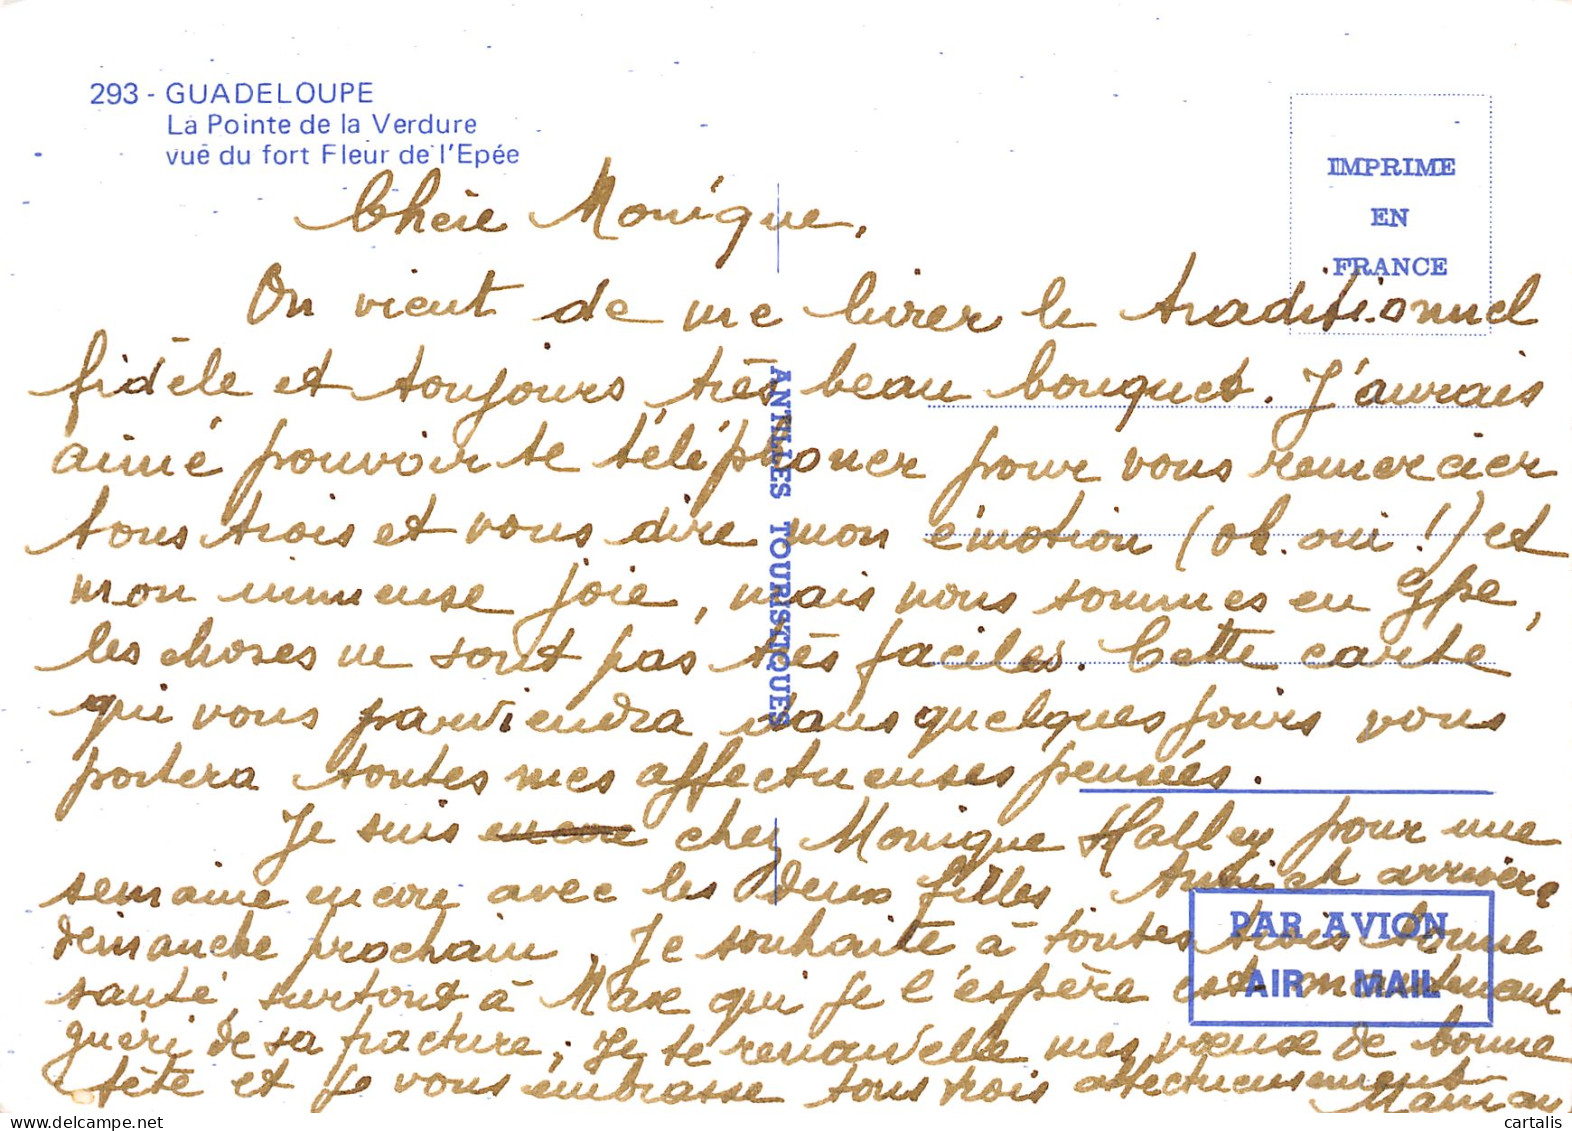 293 - GUADELOUPE
La Pointe de la Verdure
vue du fort Fleur de l'Epée
IMPRIME
EN
FRANCE
Chère Monique,
On vient de me livrer le traditionnel
fidèle et toujours très beau bouquet. J'aurais
aimé pouvoir te téléphoner pour vous remercier
tous trois et vous dire mon émotion (oh. oui !) et
mon immense joie, mais nous sommes en Gpe,
les choses ne sont pas très faciles. Cette carte
qui vous parviendra dans quelques jours vous
portera toutes mes affectueuses pensées.
Je suis encore chez Monique Halley pour une
semaine encore avec les deux filles. arrivera
dimanche prochain. Je souhaite à toutes trois bonne
santé, surtout à Max qui je l'espère est maintenant
guéri de sa fracture; Je te renouvelle mes vœux de bonne
fête et je vous embrasse tous trois affectueusement
Maman
ANTILLES TOURISTIQUES
PAR AVION
AIR MAIL
cartalis